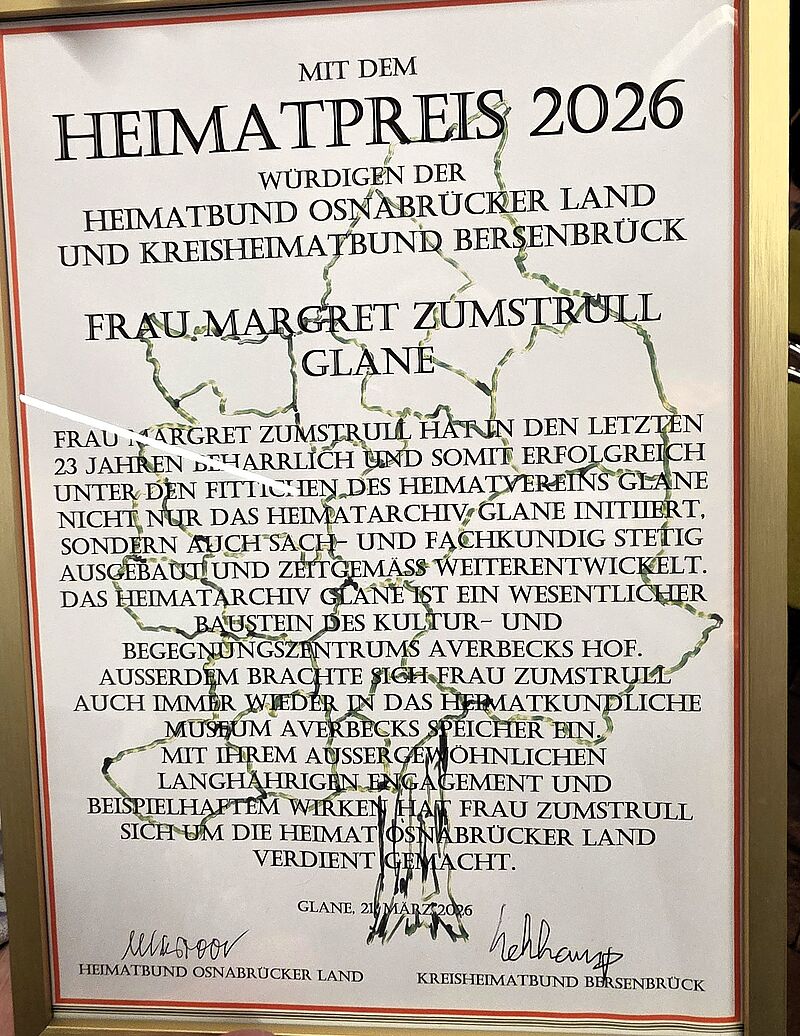 MIT DEM
HEIMATPREIS 2026
WÜRDIGEN DER
HEIMATBUND OSNABRÜCKER LAND
UND KREISHEIMATBUND BERSENBRÜCK
FRAU MARGRET ZUMSTRULL
GLANE
FRAU MARGRET ZUMSTRULL HAT IN DEN LETZTEN
23 JAHREN BEHARRLICH UND SOMIT ERFOLGREICH
UNTER DEN FITTICHEN DES HEIMATVEREINS GLANE
NICHT NUR DAS HEIMATARCHIV GLANE INITIIERT,
SONDERN AUCH SACH- UND FACHKUNDIG STETIG
AUSGEBAUT UND ZEITGEMÄSS WEITERENTWICKELT.
DAS HEIMATARCHIV GLANE IST EIN WESENTLICHER
BAUSTEIN DES KULTUR- UND
BEGEGNUNGSZENTRUMS AVERBECKS HOF.
AUSSERDEM BRACHTE SICH FRAU ZUMSTRULL
AUCH IMMER WIEDER IN DAS HEIMATKUNDLICHE
MUSEUM AVERBECKS SPEICHER EIN.
MIT IHREM AUSSERGEWÖHNLICHEN
LANGHÄHRIGEN ENGAGEMENT UND
BEISPIELHAFTEM WIRKEN HAT FRAU ZUMSTRULL
SICH UM DIE HEIMAT OSNABRÜCKER LAND
VERDIENT GEMACHT.
GLANE, 21. MÄRZ 2026
HEIMATBUND OSNABRÜCKER LAND
KREISHEIMATBUND BERSENBRÜCK